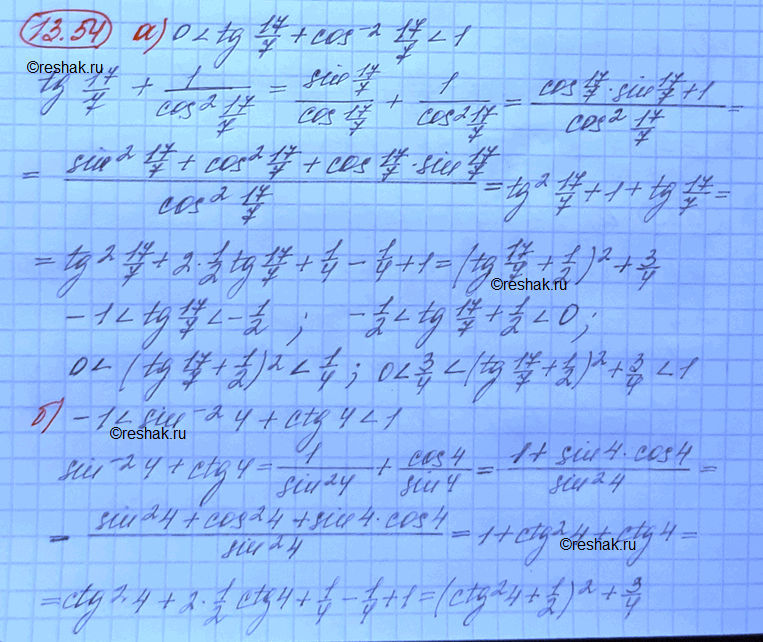 13.54 а) 0 < tg 17/7 + cos⁻² 17/7 < 1
©reshak.ru
tg 17/7 + 1/cos² 17/7 = sin 17/7 / cos 17/7 + 1/cos² 17/7 = (cos 17/7 · sin 17/7 + 1)/cos² 17/7 =
= (sin² 17/7 + cos² 17/7 + cos 17/7 · sin 17/7)/cos² 17/7 = tg² 17/7 + 1 + tg 17/7 =
= tg² 17/7 + 2·1/2 tg 17/7 + 1/4 - 1/4 + 1 = (tg 17/7 + 1/2)² + 3/4
©reshak.ru
-1 < tg 17/7 < -1/2 ; -1/2 < tg 17/7 + 1/2 < 0 ;
0 < (tg 17/7 + 1/2)² < 1/4 ; 0 < 3/4 < (tg 17/7 + 1/2)² + 3/4 < 1
б) -1 < sin⁻² 4 + ctg 4 < 1
©reshak.ru
sin⁻² 4 + ctg 4 = 1/sin² 4 + cos 4/sin 4 = (1 + sin 4 · cos 4)/sin² 4 =
= (sin² 4 + cos² 4 + sin 4 · cos 4)/sin² 4 = 1 + ctg² 4 + ctg 4 =
©reshak.ru
= ctg² · 4 + 2·1/2 ctg 4 + 1/4 - 1/4 + 1 = (ctg² 4 + 1/2)² + 3/4